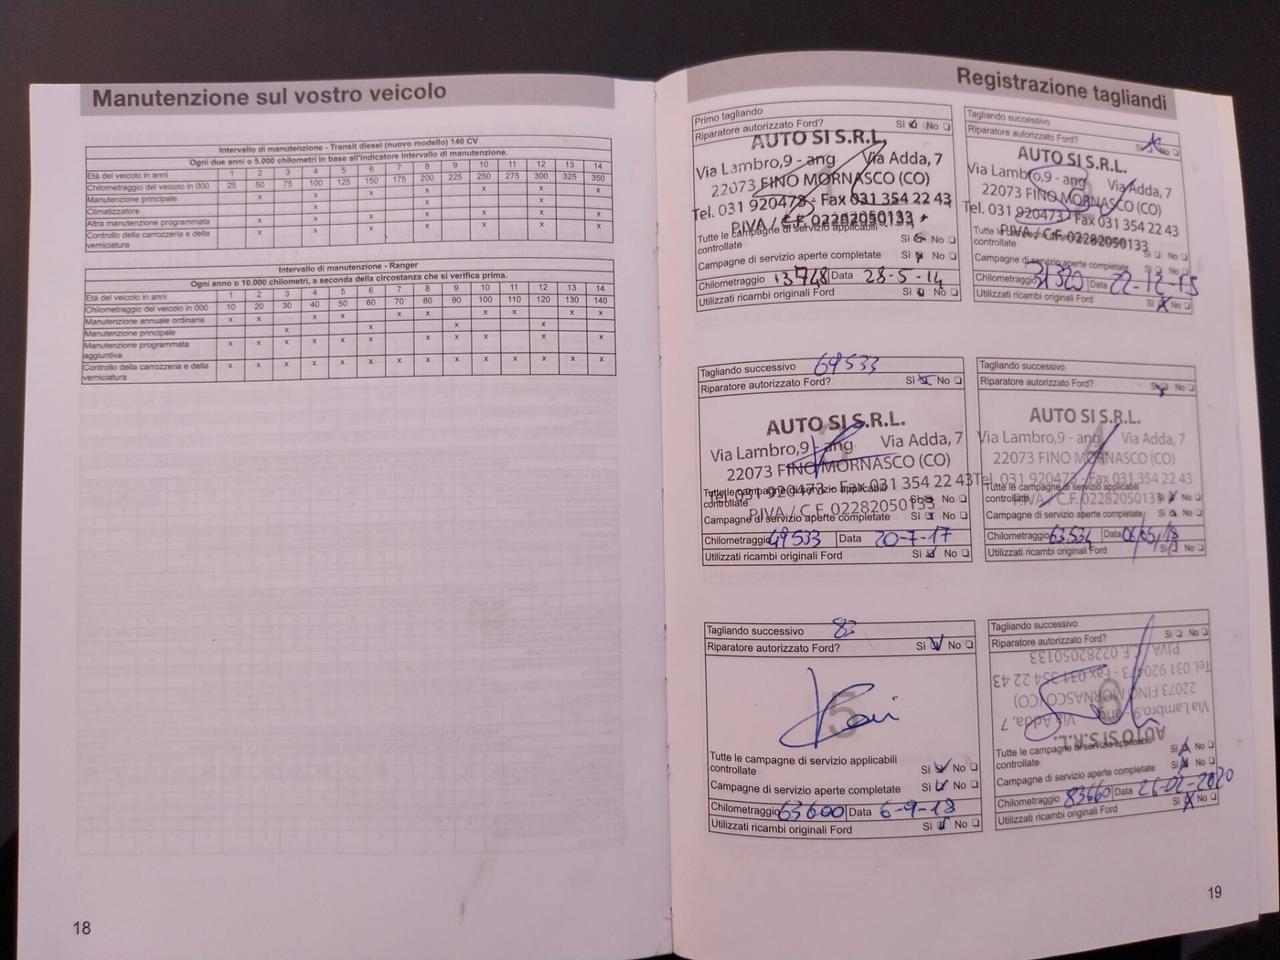 Manutenzione sul vostro veicolo
Intervallo di manutenzione - Transit diesel (nuovo modello) 140 CV
Ogni due anni o 5.000 chilometri in base all'indicatore intervallo di manutenzione.
Età del veicolo in anni 1 2 3 4 5 6 7 8 9 10 11 12 13 14
Chilometraggio del veicolo in 000 25 50 75 100 125 150 175 200 225 250 275 300 325 350
Manutenzione principale x x x x x x x
Climatizzatore x x x
Altra manutenzione programmata x x x x x x x
Controllo della carrozzeria e della verniciatura x x x x x x x
Intervallo di manutenzione - Ranger
Ogni anno o 10.000 chilometri, a seconda della circostanza che si verifica prima.
Età del veicolo in anni 1 2 3 4 5 6 7 8 9 10 11 12 13 14
Chilometraggio del veicolo in 000 10 20 30 40 50 60 70 80 90 100 110 120 130 140
Manutenzione annuale ordinaria x x x x x x x x x x
Manutenzione principale x x x x
Manutenzione programmata aggiuntiva x x x x x x x x x x
Controllo della carrozzeria e della verniciatura x x x x x x x x x x x x x x
18
Registrazione tagliandi
Primo tagliando
Riparatore autorizzato Ford? Sì No
AUTO SI S.R.L.
Via Lambro,9 - ang Via Adda, 7
22073 FINO MORNASCO (CO)
Tel. 031 920473 - Fax 031 354 22 43
P.IVA / C.F. 02282050133
Tutte le campagne di servizio applicabili
controllate Sì No
Campagne di servizio aperte completate Sì No
Chilometraggio 13748 Data 28-5-14
Utilizzati ricambi originali Ford Sì No
Tagliando successivo
Riparatore autorizzato Ford? Sì No
AUTO SI S.R.L.
Via Lambro,9 - ang Via Adda, 7
22073 FINO MORNASCO (CO)
Tel. 031 920473 - Fax 031 354 22 43
P.IVA / C.F. 02282050133
Tutte le campagne di servizio applicabili
controllate Sì No
Campagne di servizio aperte completate Sì No
Chilometraggio 31320 Data 22-12-15
Utilizzati ricambi originali Ford Sì No
Tagliando successivo 69533
Riparatore autorizzato Ford? Sì No
AUTO SI S.R.L.
Via Lambro,9 - ang Via Adda, 7
22073 FINO MORNASCO (CO)
Tel. 031 920473 - Fax 031 354 22 43
P.IVA / C.F. 02282050133
Tutte le campagne di servizio applicabili
controllate Sì No
Campagne di servizio aperte completate Sì No
Chilometraggio 49533 Data 20-7-17
Utilizzati ricambi originali Ford Sì No
Tagliando successivo
Riparatore autorizzato Ford? Sì No
4
AUTO SI S.R.L.
Via Lambro,9 - ang Via Adda, 7
22073 FINO MORNASCO (CO)
Tel. 031 920473 - Fax 031 354 22 43
P.IVA / C.F. 02282050133
Tutte le campagne di servizio applicabili
controllate Sì No
Campagne di servizio aperte completate Sì No
Chilometraggio 63534 Data 06/05/18
Utilizzati ricambi originali Ford Sì No
Tagliando successivo
Riparatore autorizzato Ford? Sì No
5
Tutte le campagne di servizio applicabili
controllate Sì No
Campagne di servizio aperte completate Sì No
Chilometraggio 63600 Data 6-9-18
Utilizzati ricambi originali Ford Sì No
Tagliando successivo
Riparatore autorizzato Ford? Sì No
6
AUTO SI S.R.L.
Via Lambro,9 - ang Via Adda, 7
22073 FINO MORNASCO (CO)
Tel. 031 920473 - Fax 031 354 22 43
P.IVA / C.F. 02282050133
Tutte le campagne di servizio applicabili
controllate Sì No
Campagne di servizio aperte completate Sì No
Chilometraggio 83660 Data 26-02-2020
Utilizzati ricambi originali Ford Sì No
19